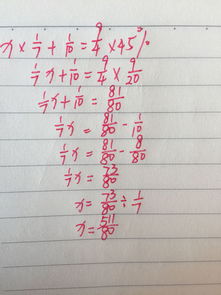 x × 1/7 + 1/10 = 9/4 × 45%
1/7 x + 1/10 = 9/4 × 9/20
1/7 x + 1/10 = 81/80
1/7 x = 81/80 - 1/10
1/7 x = 81/80 - 8/80
1/7 x = 73/80
x = 73/80 ÷ 1/7
x = 511/80